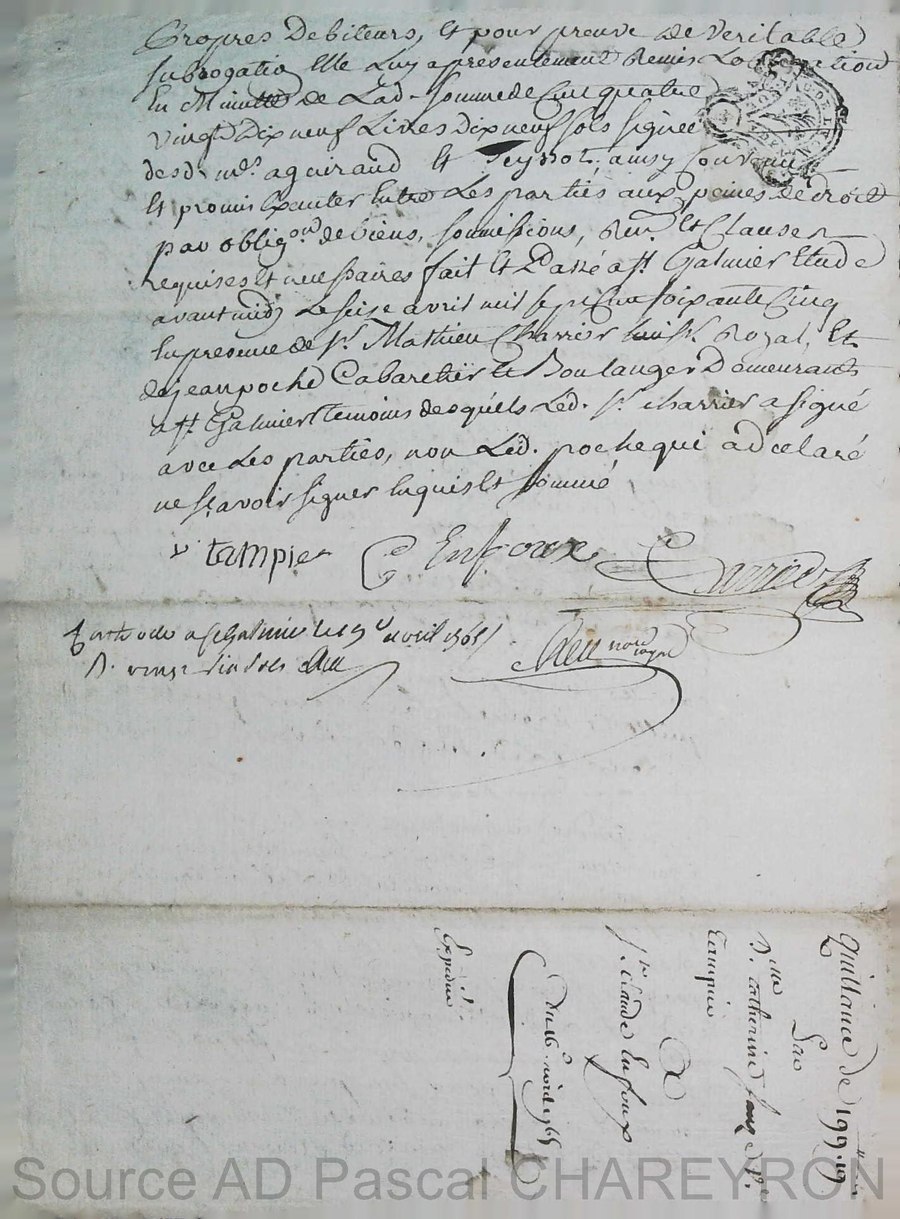 Propres debiteurs, et pour preuve de veritable
subrogation elle luy a presentement remis
en minutte de lad. somme de cent quatre
vingt dix neuf livres dix neuf sols signée
desd. mrs. aguiraud et Teyssot. ainsy convenu
et promis executer entre les parties aux peines de droit
par obligon. de biens, soumissions, ren. et clauses
requises et necessaires fait et passé a st. Galmier Etude
avant midy le seise avril mil sept cent soixante cinq
en presence de sr. Mathieu Charrier huissr. Royal, et
de jean poche Cabaretier et Boulanger Demeurants
a st. Galmier temoins desquels led. sr. charrier a signé
avec les parties, non led. poche qui a declaré
ne sçavoir signer enquis et sommé
tampier Enfoux Charrier
a st Galmier le avril 1765
R. vingt six sols
notre royal
Quittance de 199 " 19
Par
Dlle catherine
tampier
A
sr. claude Enfoux
Du 16e. avril 1765
Expedié
Source AD Pascal CHAREYRON